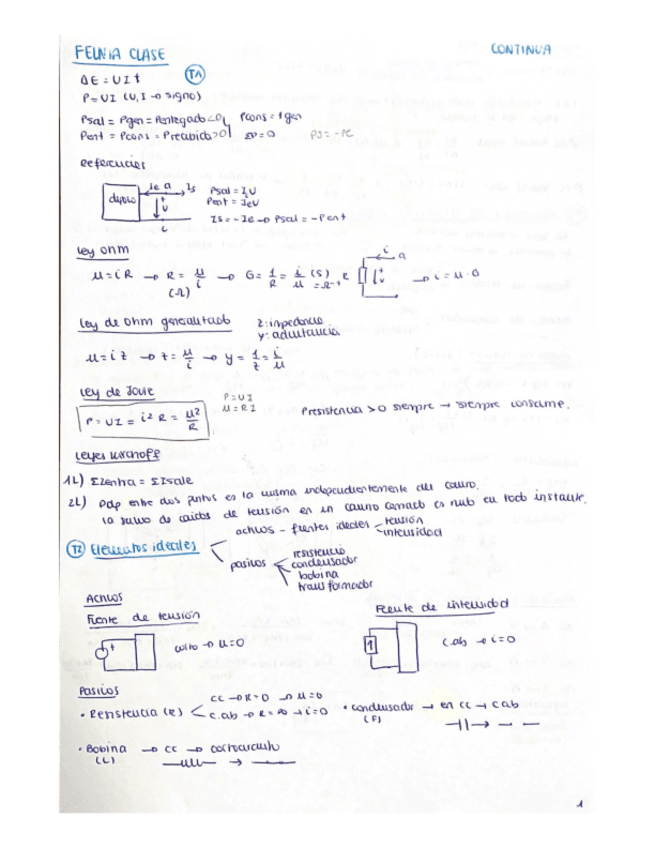 FELNIA CLASE
CONTINUA
ΔE = U I t
T1
P = UI (U, I → signo)
Psal = Pgen = Pentregado < 0
Pcons = Pgen
Pent = Pcons = Precibido > 0
ΣP = 0
PS = -PC
Referencias
dipolo
Ie a Is
+
U
i
Psal = IsU
Pent = IeU
Is = -Ie → Psal = -Pent
Ley ohm
u = iR → R = u/i → G = 1/R = i/u (S) = Ω⁻¹
(Ω)
R
i
a
+
→ i = u · G
Ley de ohm generalizado
Z: impedancia
y: admitancia
u = i z → z = u/i → y = 1/z = i/u
Ley de Joule
P = UI
U = RI
P = UI = i² R = u²/R
Presistencia > 0 siempre → siempre consume.
Leyes Kirchoff
1L) ΣIentra = ΣIsale
2L) Pdp entre dos puntos es la misma independientemente del camino.
la suma de caidas de tensión en un camino cerrado es nulo en todo instante.
T2 Elementos ideales
activos - fuentes ideales
tensión
intensidad
pasivos
resistencia
condensador
bobina
transformador
Activos
Fuente de tensión
Fuente de intensidad
corto → u = 0
C.ab → i = 0
Pasivos
• Resistencia (R)
cc → R = 0 → u = 0
c.ab → R = ∞ → i = 0
• Condensador → en cc → cab
(F)
• Bobina → cc → cortocircuito
(L)
1